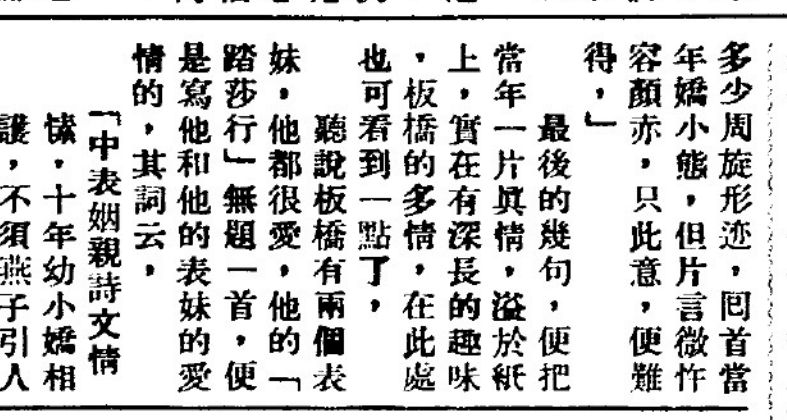 多少周旋形迹，囘首當
年嬌小態，但片言微忤
容顏赤，只此意，便難
得，」
最後的幾句，便把
當年一片眞情，溢於紙
上，實在有深長的趣味
，板橋的多情，在此處
也可看到一點了，
聽說板橋有兩個表
妹，他都很愛，他的「
踏莎行」無題一首，便
是寫他和他的表妹的愛
情的，其詞云，
「中表姻親詩文情
愫，十年幼小嬌相
護，不須燕子引人